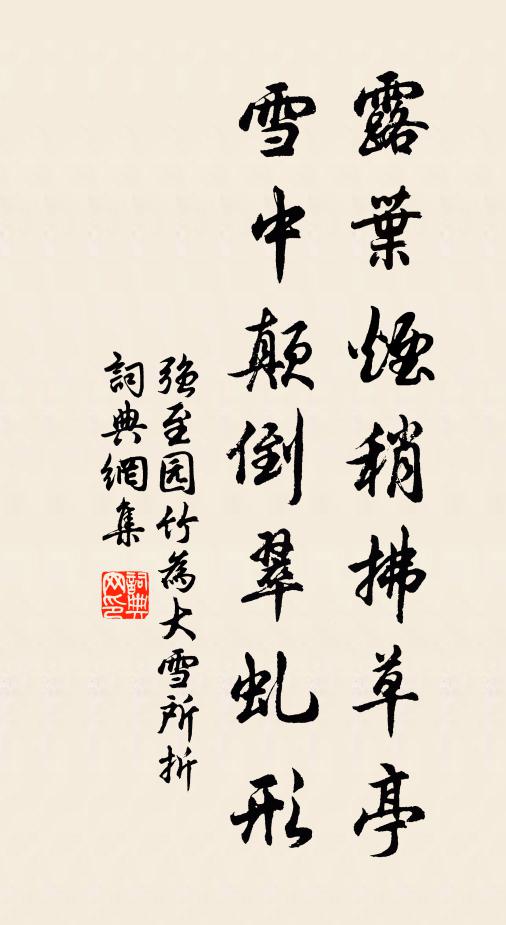 露葉煙稍拂草亭
雪中顛倒翠虬形
强至园竹為大雪所折
詞典網集
詞典网印